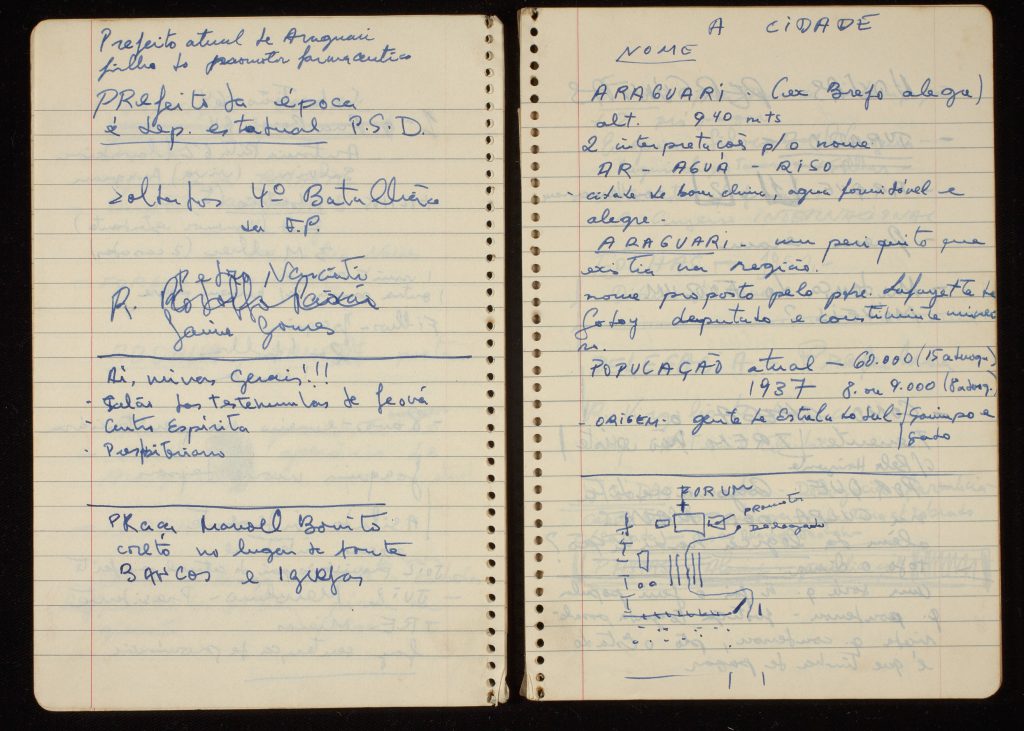 Prefeito atual de Araguari
filho do promotor farmaceutico
PRefeito da época
é dep. estadual P.S.D.
soltados 4º Batalhão
da F.P.
Pedro Nonciati
R. Rodolfo Paixão
Jaime Gomes
Ai, minas Gerais!!!
- Salão das testemunhas de Jeová
- Centro Espírita
- Presbiteriano
PRaça Manoel Bonito
coretó no lugar da fonte
BANCOS e Igrejas
A CIDADE
NOME
ARAGUARI . (ex Brejo alegre)
alt. 940 mts
2 interpretações p/o nome
AR - AGUÁ - RISO
- cidade de bom clima, agua formidável e
alegre.
ARAGUARI um periquito que
existia na região.
nome proposto pelo Lafayette de
Godoy deputado e constituinte
POPULAÇÃO atual — 60.000 (15
1937 8. ou 9.000 (8
- ORIGEM. gente de Estrela do Sul - Garimpo e
gado
FORUM
promotor
Delegado